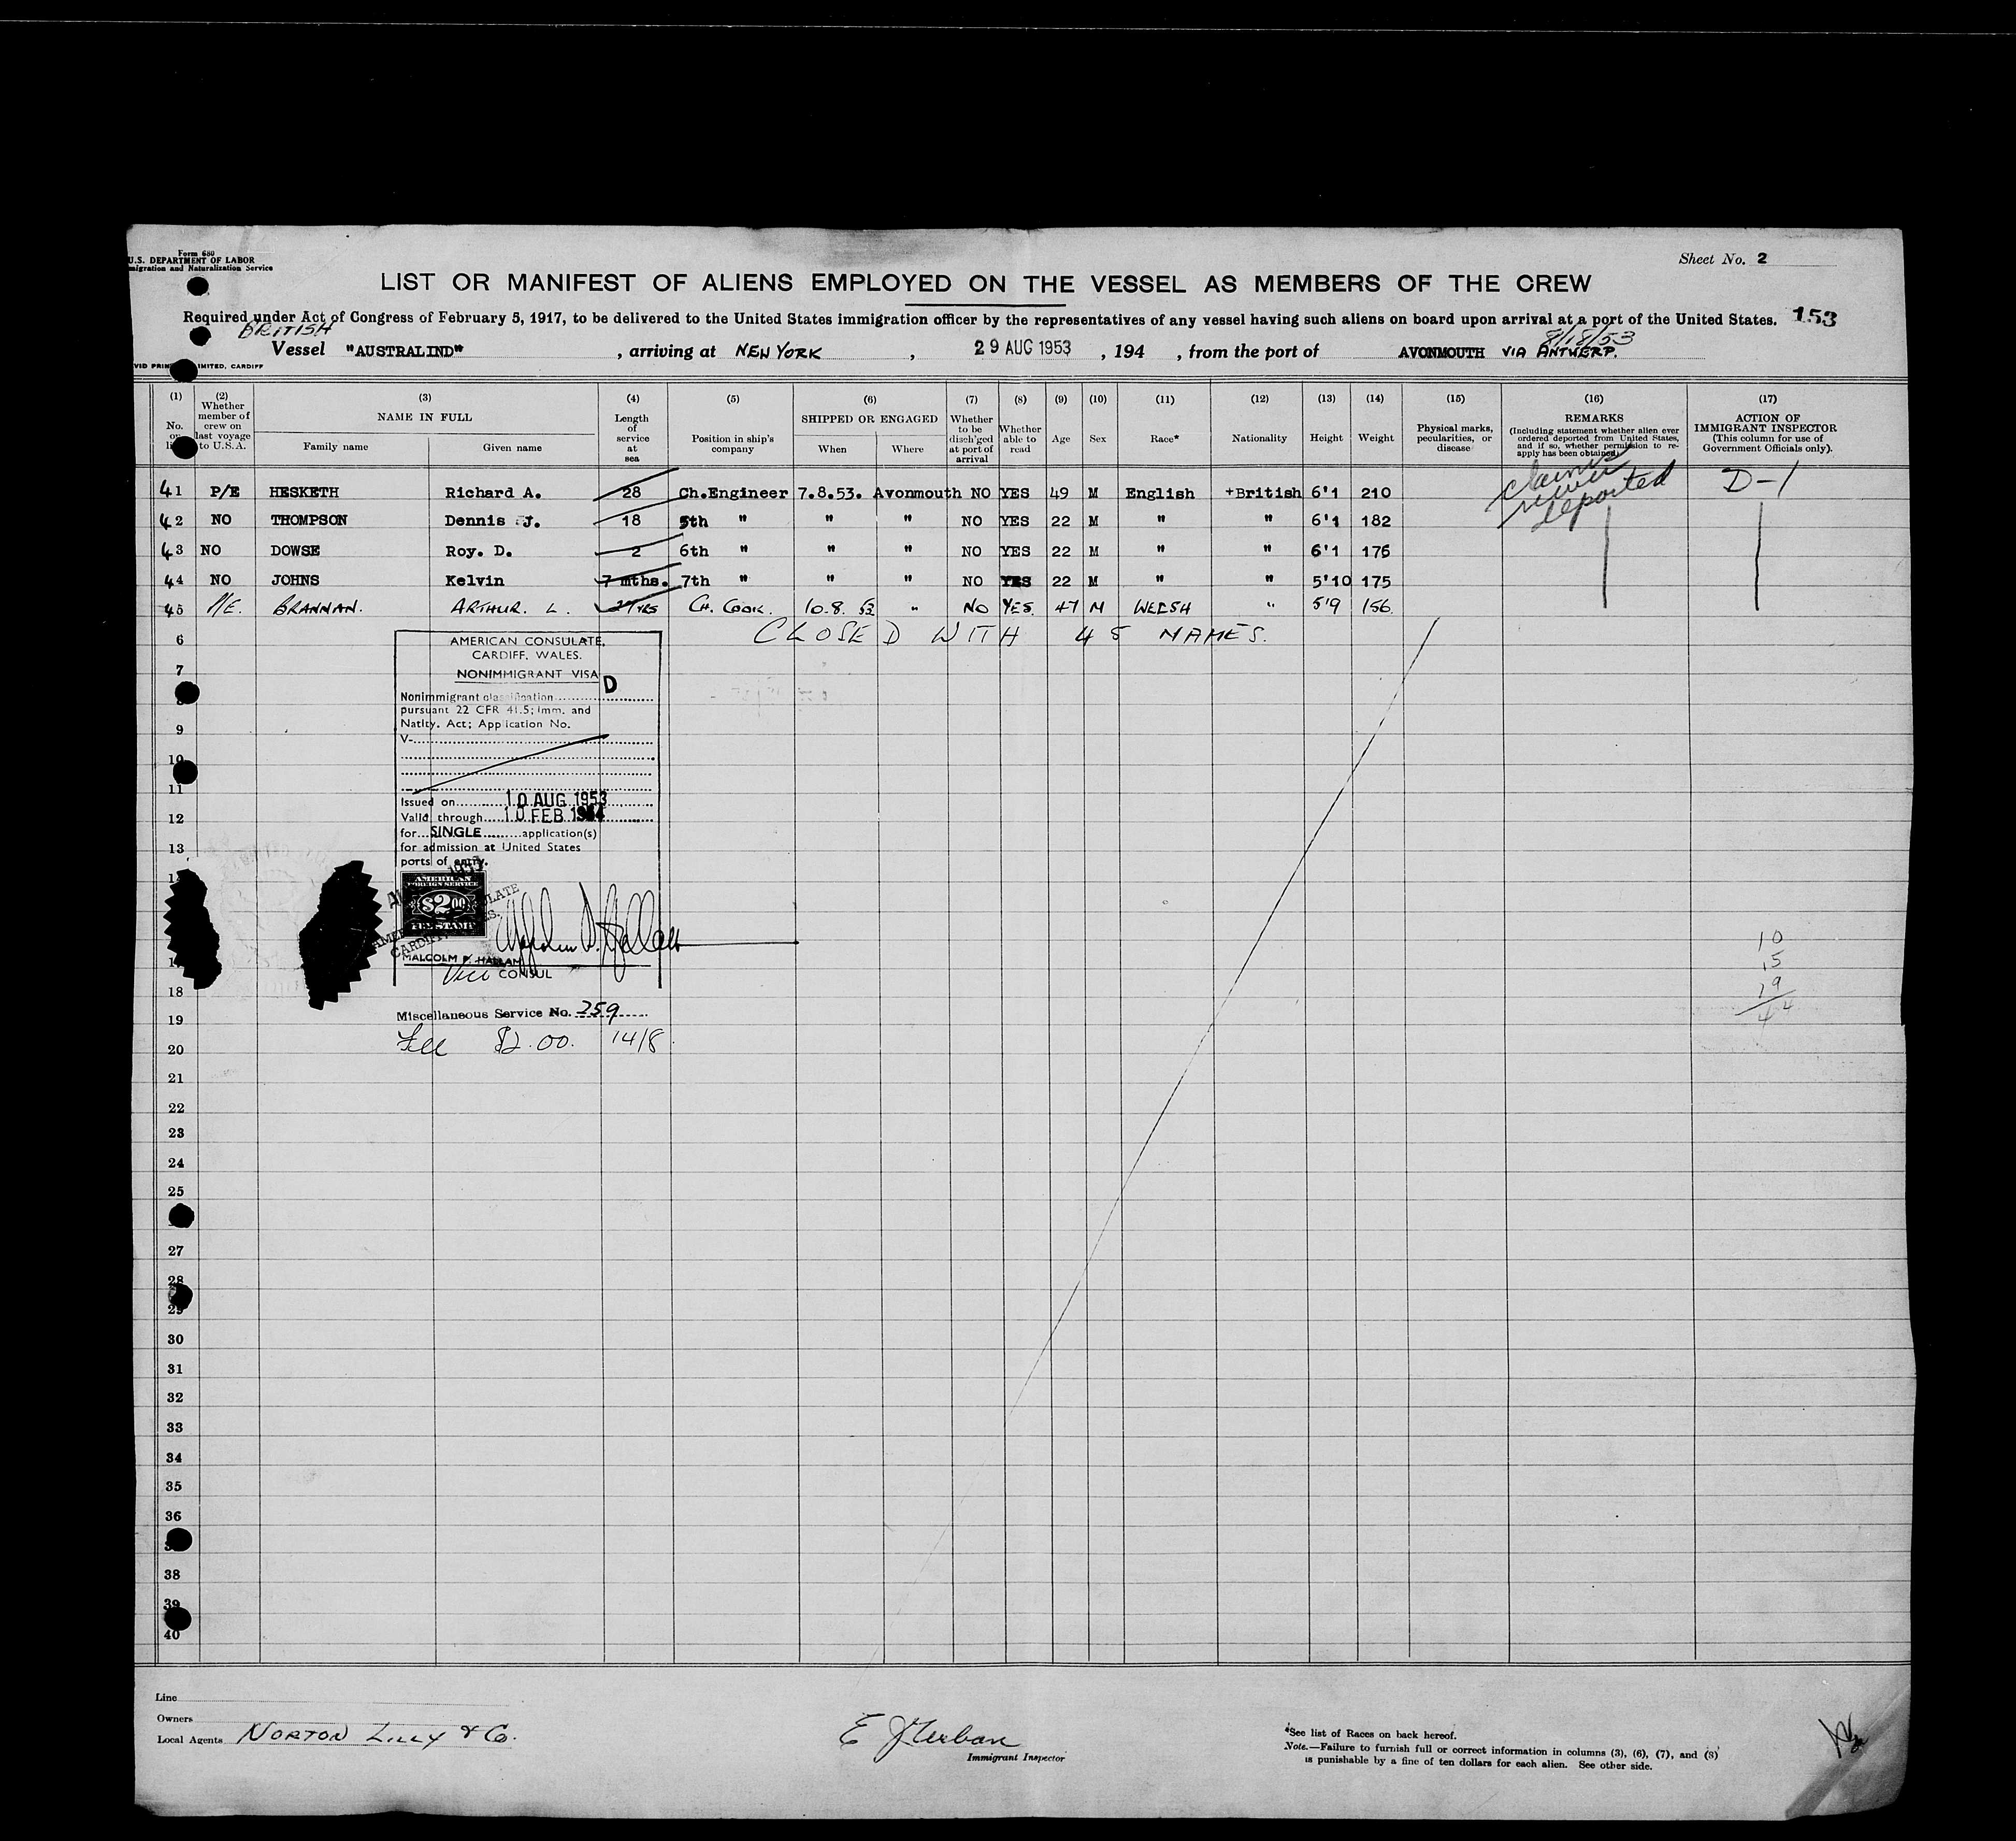 Form 680
U.S. DEPARTMENT OF LABOR
migration and Naturalization Service
Sheet No. 2
LIST OR MANIFEST OF ALIENS EMPLOYED ON THE VESSEL AS MEMBERS OF THE CREW
Required under Act of Congress of February 5, 1917, to be delivered to the United States immigration officer by the representatives of any vessel having such aliens on board upon arrival at a port of the United States. 153
BRITISH 8/18/53
Vessel "AUSTRALIND" , arriving at NEW YORK , 29 AUG 1953 , 194 , from the port of AVONMOUTH VIA ANTWERP.
VID PRIN IMITED, CARDIFF
(1) No. on li
(2) Whether member of crew on last voyage to U.S.A.
(3) NAME IN FULL
Family name Given name
(4) Length of service at sea
(5) Position in ship's company
(6) SHIPPED OR ENGAGED
When Where
(7) Whether to be disch'ged at port of arrival
(8) Whether able to read
(9) Age
(10) Sex
(11) Race*
(12) Nationality
(13) Height
(14) Weight
(15) Physical marks, pecularities, or disease
(16) REMARKS (Including statement whether alien ever ordered deported from United States, and if so, whether permission to re-apply has been obtained)
(17) ACTION OF IMMIGRANT INSPECTOR (This column for use of Government Officials only).
41 P/E HESKETH Richard A. 28 Ch.Engineer 7.8.53. Avonmouth NO YES 49 M English +British 6'1 210 deported D-1
42 NO THOMPSON Dennis J. 18 5th " " " NO YES 22 M " " 6'1 182
43 NO DOWSE Roy. D. 2 6th " " " NO YES 22 M " " 6'1 175
44 NO JOHNS Kelvin 7 mths. 7th " " " NO YES 22 M " " 5'10 175
45 P/E. BRANNAN. ARTHUR. L. YRS CH. COOK. 10.8.53 " NO YES. 47 M WELSH " 5'9 156.
6 CLOSED WITH 45 NAMES.
7
9
10
11
12
13
18
19
20
21
22
23
24
25
27
28
29
30
31
32
33
34
35
36
38
39
40
AMERICAN CONSULATE,
CARDIFF, WALES.
NONIMMIGRANT VISA
Nonimmigrant classification D
pursuant 22 CFR 41.5; Imm. and
Natlty. Act; Application No.
V-
Issued on 10 AUG 1953
Valid through 10 FEB 1954
for SINGLE application(s)
for admission at United States
ports of entry.
AMERICAN
FOREIGN SERVICE
$2.00
FEE STAMP
MALCOLM P. HALLAM
Vice CONSUL
Miscellaneous Service No. 259
Fee $2.00. 14/8
10
15
19
44
Line
Owners
Local Agents NORTON LILLY & Co.
E J Urban
Immigrant Inspector
*See list of Races on back hereof.
Note.—Failure to furnish full or correct information in columns (3), (6), (7), and (8)
is punishable by a fine of ten dollars for each alien. See other side.